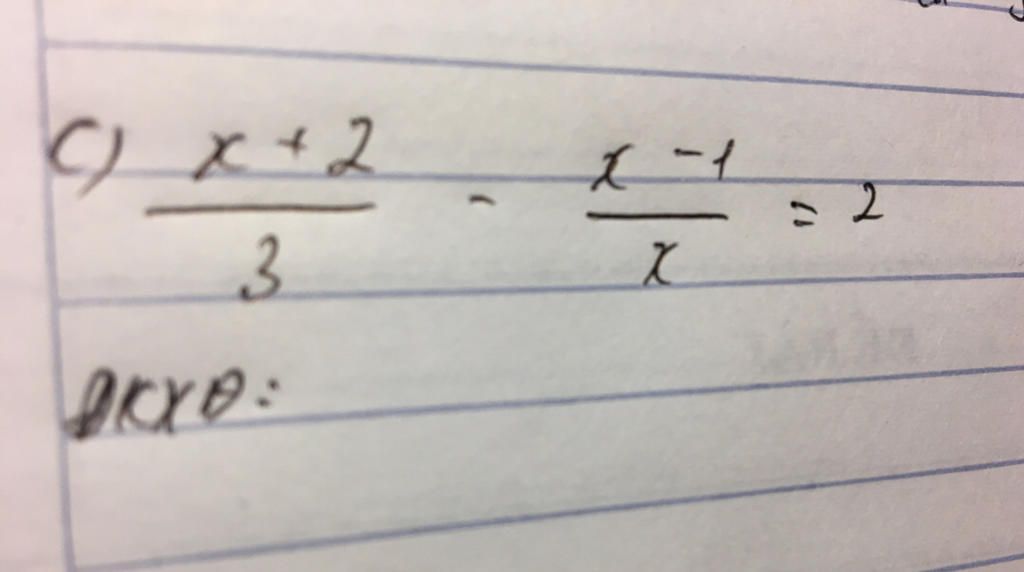 C) x + 2 / 3 - x - 1 / x = 2
ĐKXĐ: